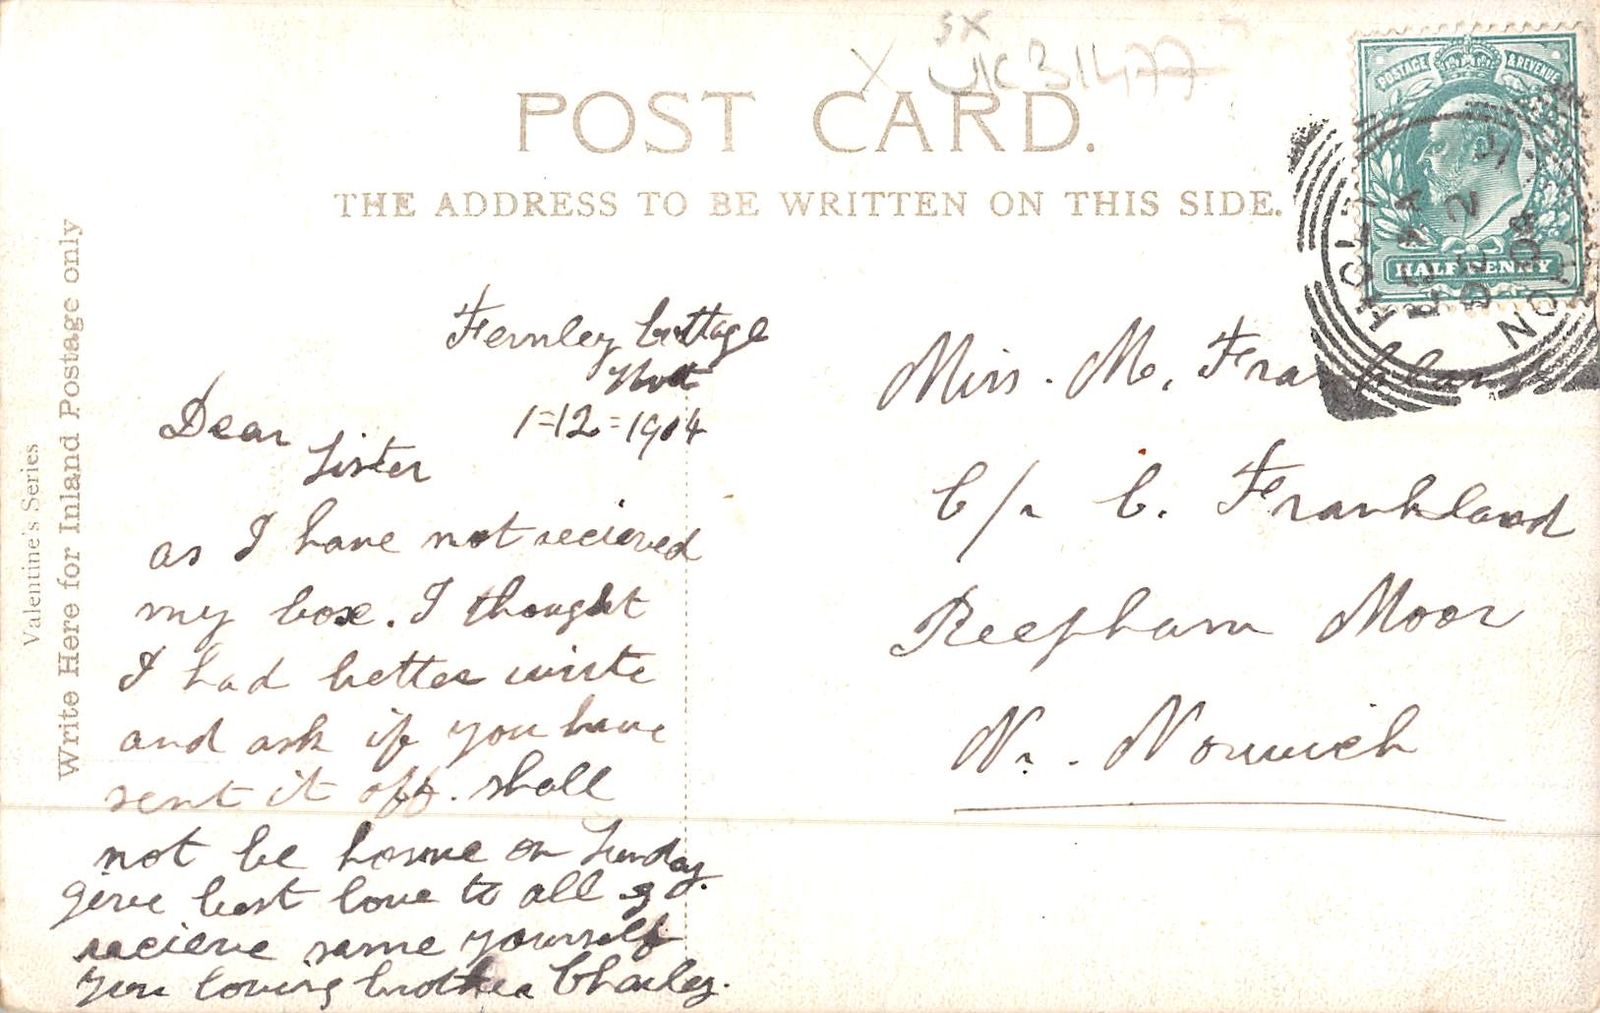 SX
X UK 31477
POST CARD.
THE ADDRESS TO BE WRITTEN ON THIS SIDE.
POSTAGE & REVENUE
HALF PENNY
DE 2
04
Valentine's Series
Write Here for Inland Postage only
Fernley Cottage
Holt
1=12=1904
Dear
Sister
as I have not recieved
my box. I thought
I had better wirte
and ask if you have
sent it off. shall
not be home on Sunday.
give best love to all &
recieve same yourself
your loving brother Charley.
Miss. M. Frankland
C/o C. Frankland
Reepham Moor
Nr. Norwich